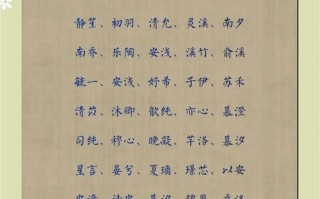 静笙、初羽、清允、灵溪、南夕
南乔、乐陶、安浅、溪竹、俞溪
毓一、安浅、妤希、子伊、苏禾
清苡、沐卿、歆纯、亦心、慕澄
司纯、穆心、晚凝、芊洛、慕汐
星言、晏兮、夏璃、璟芯、以安